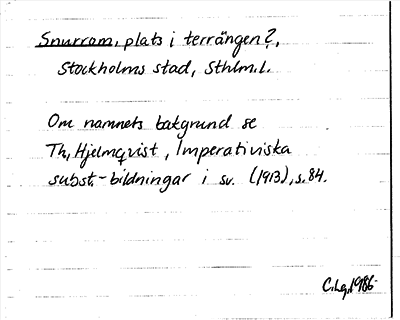 Snurrom, plats i terrängen?,
Stockholms stad, Sthlm.l.
Om namnets bakgrund se
Th, Hjelmqvist, Imperativiska
subst.-bildningar i sv. (1913), s. 84.
C.Lg. 1986